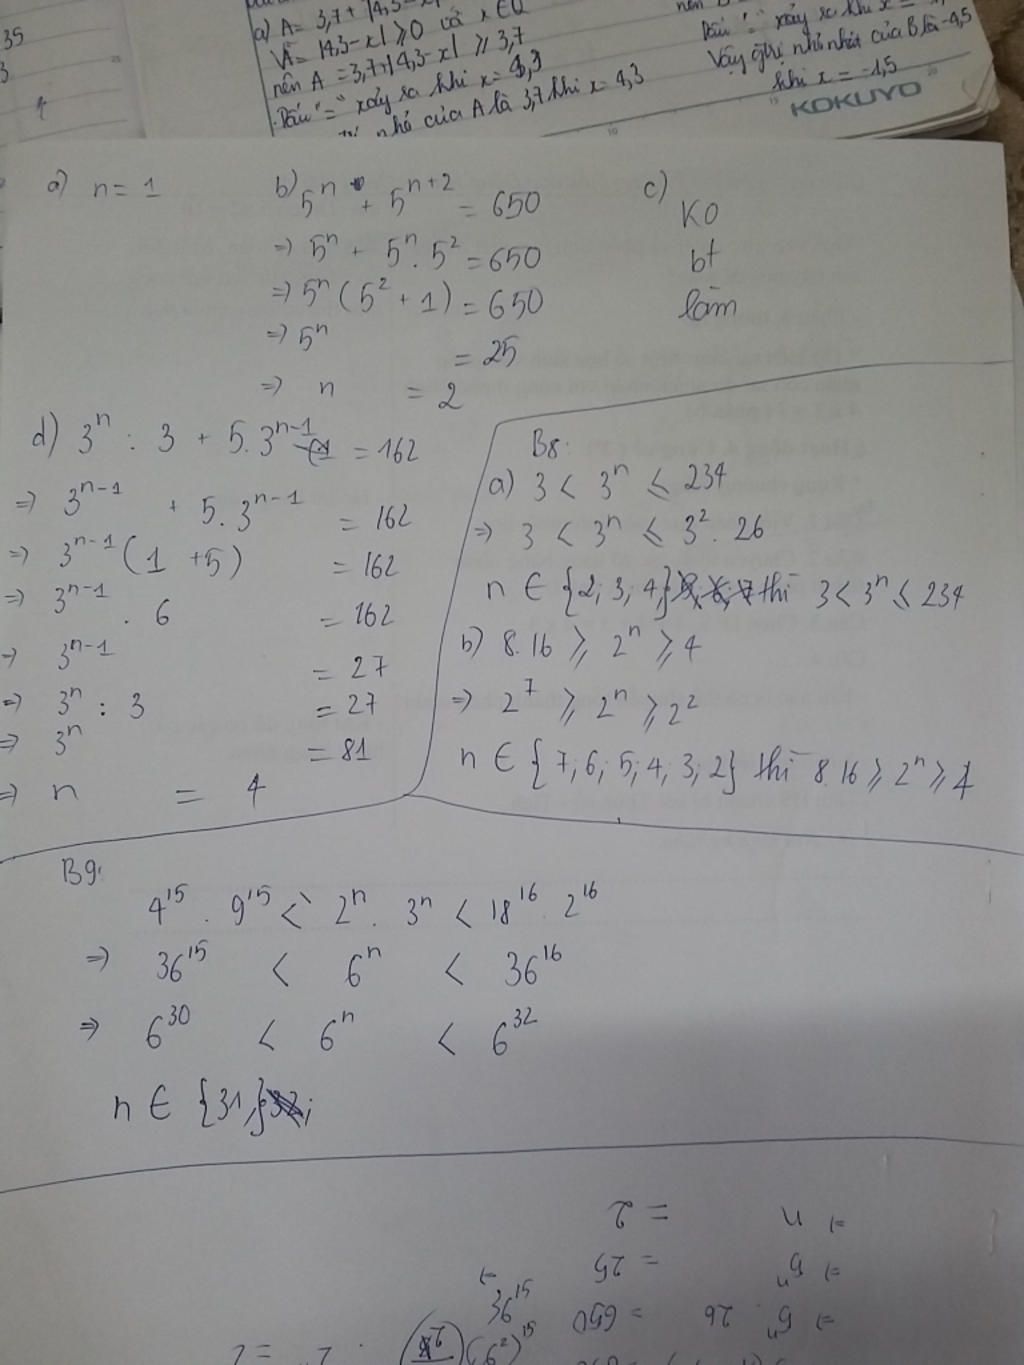 35
3
a) A = 3,7 + |4,3 - x|
Vì |4,3 - x| ≥ 0 với x ∈ Q
nên A = 3,7 + |4,3 - x| ≥ 3,7
Dấu "=" xảy ra khi x = 4,3
nhỏ của A là 3,7 khi x = 4,3
Dấu "=" xảy ra khi x =
Vậy giá nhỏ nhất của B là -4,5
khi x = -1,5
KOKUYO
a) n = 1
b) 5ⁿ + 5ⁿ⁺² = 650
=> 5ⁿ + 5ⁿ . 5² = 650
=> 5ⁿ (5² + 1) = 650
=> 5ⁿ = 25
=> n = 2
c)
KO
bt
làm
d) 3ⁿ : 3 + 5.3ⁿ⁻¹ = 162
=> 3ⁿ⁻¹ + 5.3ⁿ⁻¹ = 162
=> 3ⁿ⁻¹ (1 + 5) = 162
=> 3ⁿ⁻¹ . 6 = 162
=> 3ⁿ⁻¹ = 27
=> 3ⁿ : 3 = 27
=> 3ⁿ = 81
=> n = 4
B8:
a) 3 < 3ⁿ ≤ 234
=> 3 < 3ⁿ ≤ 3² . 26
n ∈ {2; 3; 4} thì 3 < 3ⁿ ≤ 234
b) 8.16 ≥ 2ⁿ ≥ 4
=> 2⁷ ≥ 2ⁿ ≥ 2²
n ∈ {7; 6; 5; 4; 3; 2} thì 8.16 ≥ 2ⁿ ≥ 4
B9:
4¹⁵ . 9¹⁵ < 2ⁿ . 3ⁿ < 18¹⁶ . 2¹⁶
=> 36¹⁵ < 6ⁿ < 36¹⁶
=> 6³⁰ < 6ⁿ < 6³²
n ∈ {31;}
=> n = 2
=> 5ⁿ = 25
=> 5ⁿ . 26 = 650
36¹⁵
(6²)¹⁵